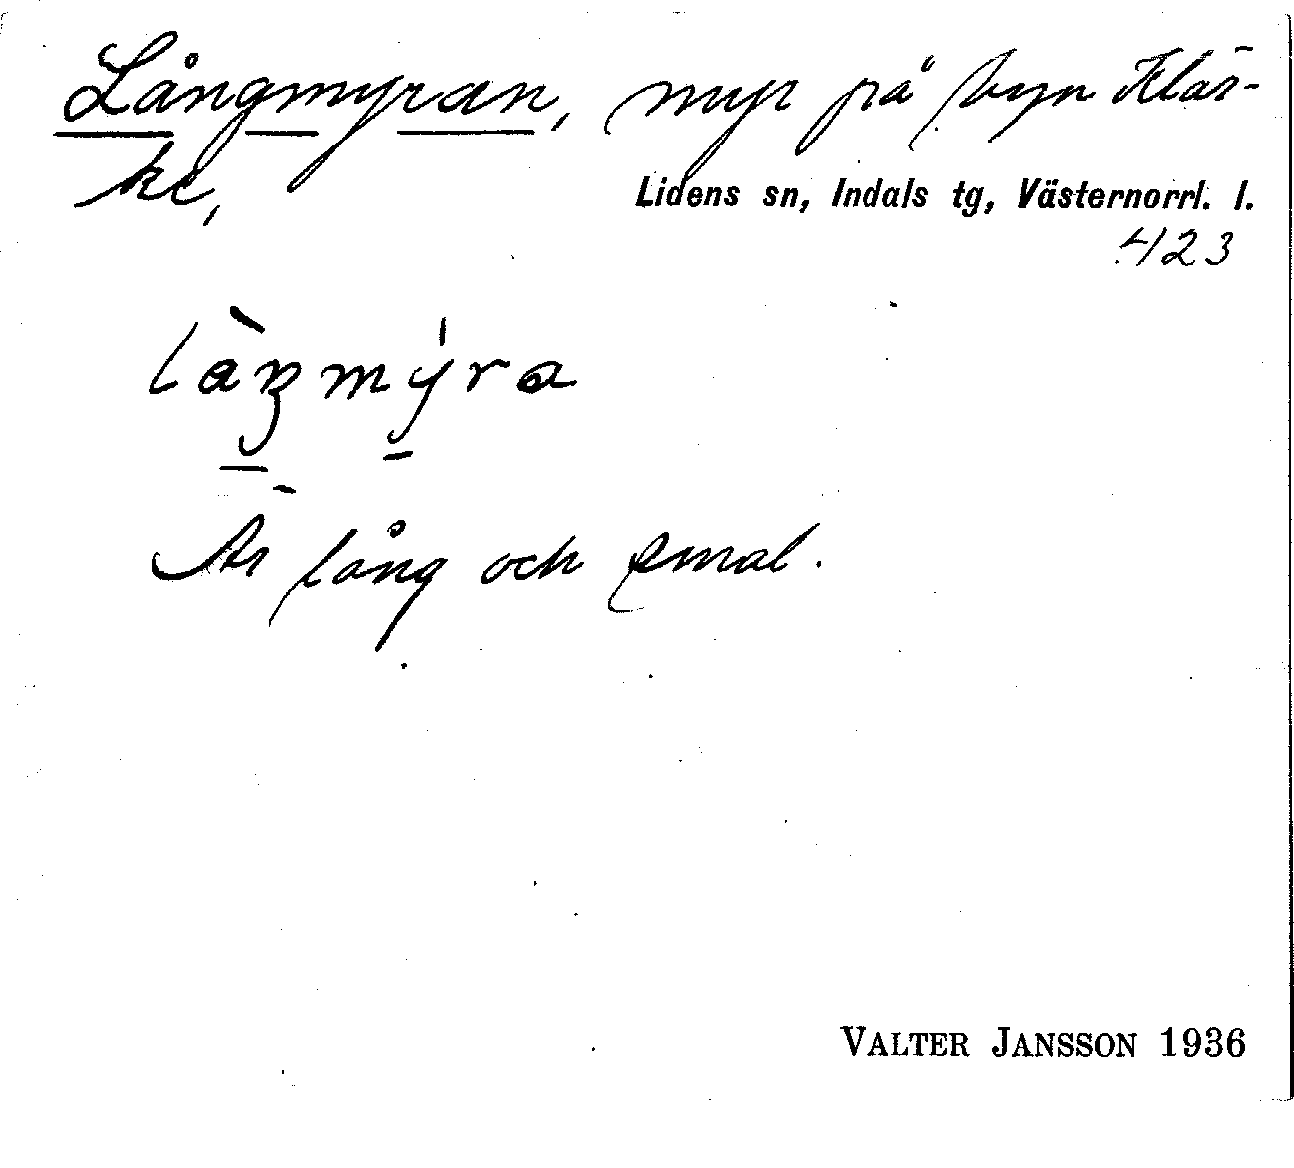 Långmyran, myr på byn Klär-
ke,
Lidens sn, Indals tg, Västernorrl. l.
423
làŋmýra
Är lång och smal.
VALTER JANSSON 1936